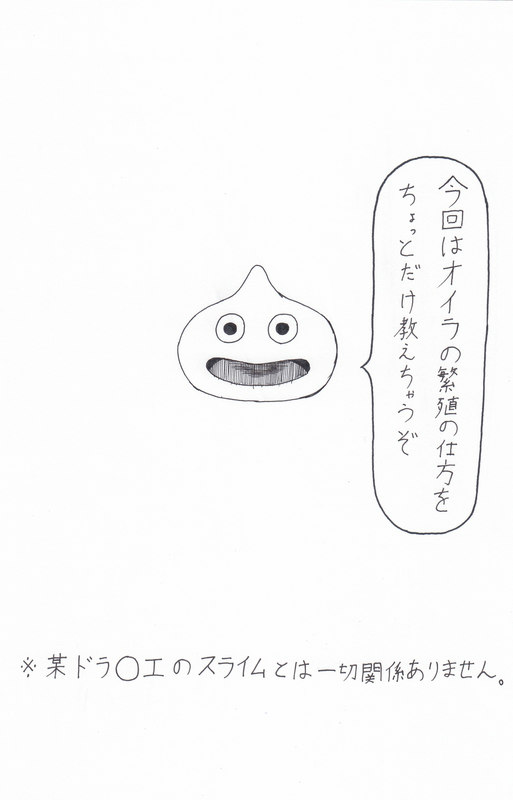 今回はオイラの繁殖の仕方を
ちょっとだけ教えちゃうぞ
※某ドラ〇エのスライムとは一切関係ありません。